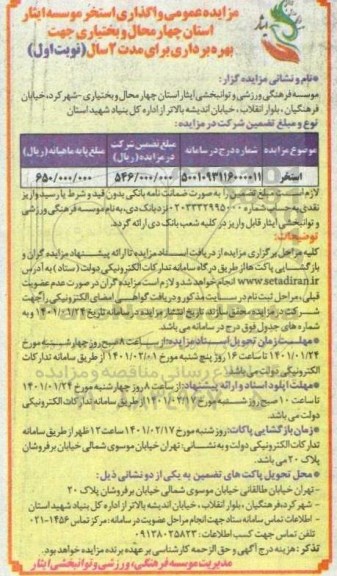 مزایده عمومی واگذاری استخر موسسه ایثار
استان چهارمحال و بختیاری جهت
بهره برداری برای مدت ۲ سال (نوبت اول)
نام و نشانی مزایده گزار:
موسسه فرهنگی ورزشی و توانبخشی ایثار استان چهارمحال و بختیاری - شهرکرد، خیابان
فرهنگیان، بلوار انقلاب، خیابان اندیشه بالاتر از اداره کل بنیاد شهید استان
نوع و مبلغ تضمین شرکت در مزایده:
موضوع مزایده شماره درج در سامانه مبلغ تضمین شرکت در مزایده (ریال) مبلغ پایه ماهیانه (ریال)
استخر ۵۰۰۱۰۹۳۱۱۶۰۰۰۰۱۱ ۵۴۶/۰۰۰/۰۰۰ ۶۵۰/۰۰۰/۰۰۰
لازم است مبلغ تضمین به صورت ضمانت نامه بانکی بدون قید و شرط یا رسید واریز
نقدی به حساب شماره نزد بانک دی، به نام موسسه فرهنگی ورزشی
و توانبخشی ایثار قابل واریز در کلیه شعب بانک دی ارائه گردد.
توضیحات:
کلیه مراحل برگزاری مزایده از دریافت اسناد مزایده تا ارائه پیشنهاد مزایده گران و
بازگشایی پاکت ها از طریق درگاه سامانه تدارکات الکترونیکی دولت (ستاد) به آدرس
www.setadiran.ir انجام خواهد شد و لازم است مزایده گران در صورت عدم عضویت
قبلی، مراحل ثبت نام در سایت مذکور و دریافت گواهی امضای الکترونیکی را جهت
شرکت در مزایده محقق سازند. تاریخ انتشار مزایده در سامانه تاریخ ۱۴۰۱/۰۱/۲۴ به
شماره های جدول فوق درج در سامانه می باشد.
مهلت زمان تحویل اسناد مزایده: از ساعت ۸ صبح روز چهارشنبه مورخ
۱۴۰۱/۰۱/۲۴ تا ساعت ۱۶ روز پنج شنبه مورخ ۱۴۰۱/۰۲/۰۱ از طریق سامانه تدارکات
الکترونیکی دولت می باشد.
مهلت اپلود اسناد و ارائه پیشنهاد: از ساعت ۸ روز چهارشنبه مورخ ۱۴۰۱/۰۱/۲۴
تا ساعت ۱۰ صبح روز شنبه مورخ ۱۴۰۱/۰۲/۱۷ از طریق سامانه تدارکات الکترونیکی
دولت می باشد.
زمان بازگشایی پاکات: روز شنبه مورخ ۱۴۰۱/۰۲/۱۷ ساعت ۱۲ ظهر از طریق سامانه
تدارکات الکترونیکی دولت و به نشانی: تهران خیابان موسوی شمالی خیابان برفروشان
پلاک ۲۰ می باشد.
محل تحویل پاکت های تضمین به یکی از دو نشانی ذیل:
- تهران خیابان طالقانی خیابان موسوی شمالی خیابان برفروشان پلاک ۲۰
- شهرکرد، فرهنگیان، بلوار انقلاب، خیابان اندیشه بالاتر از اداره کل بنیاد شهید استان
- اطلاعات تماس سامانه ستاد جهت انجام مراحل عضویت در سامانه: مرکز تماس ۱۴۵۶-۰۲۱
تلفن تماس جهت کسب اطلاعات: ۰۹۱۳۸۰۲۵۸۲۳
تذکر: هزینه درج آگهی و حق الزحمه کارشناسی بر عهده برنده مزایده خواهد بود.
مدیریت موسسه فرهنگی، ورزشی و توانبخشی ایثار